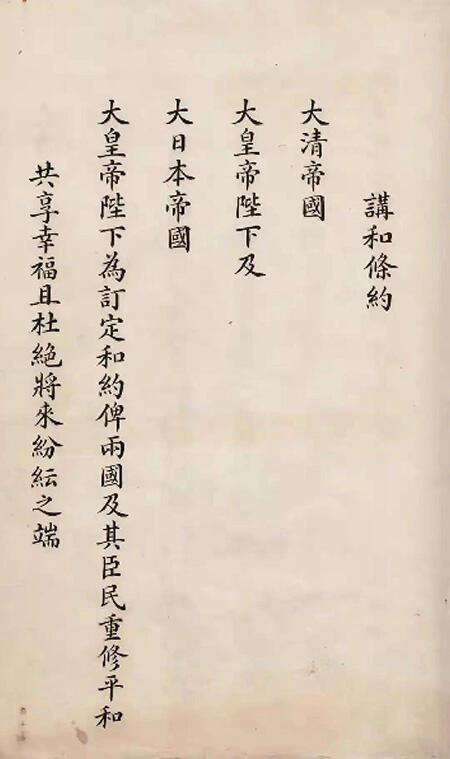 講和條約
大清帝國
大皇帝陛下及
大日本帝國
大皇帝陛下為訂定和約俾兩國及其臣民重修平和
共享幸福且杜絕將來紛紜之端